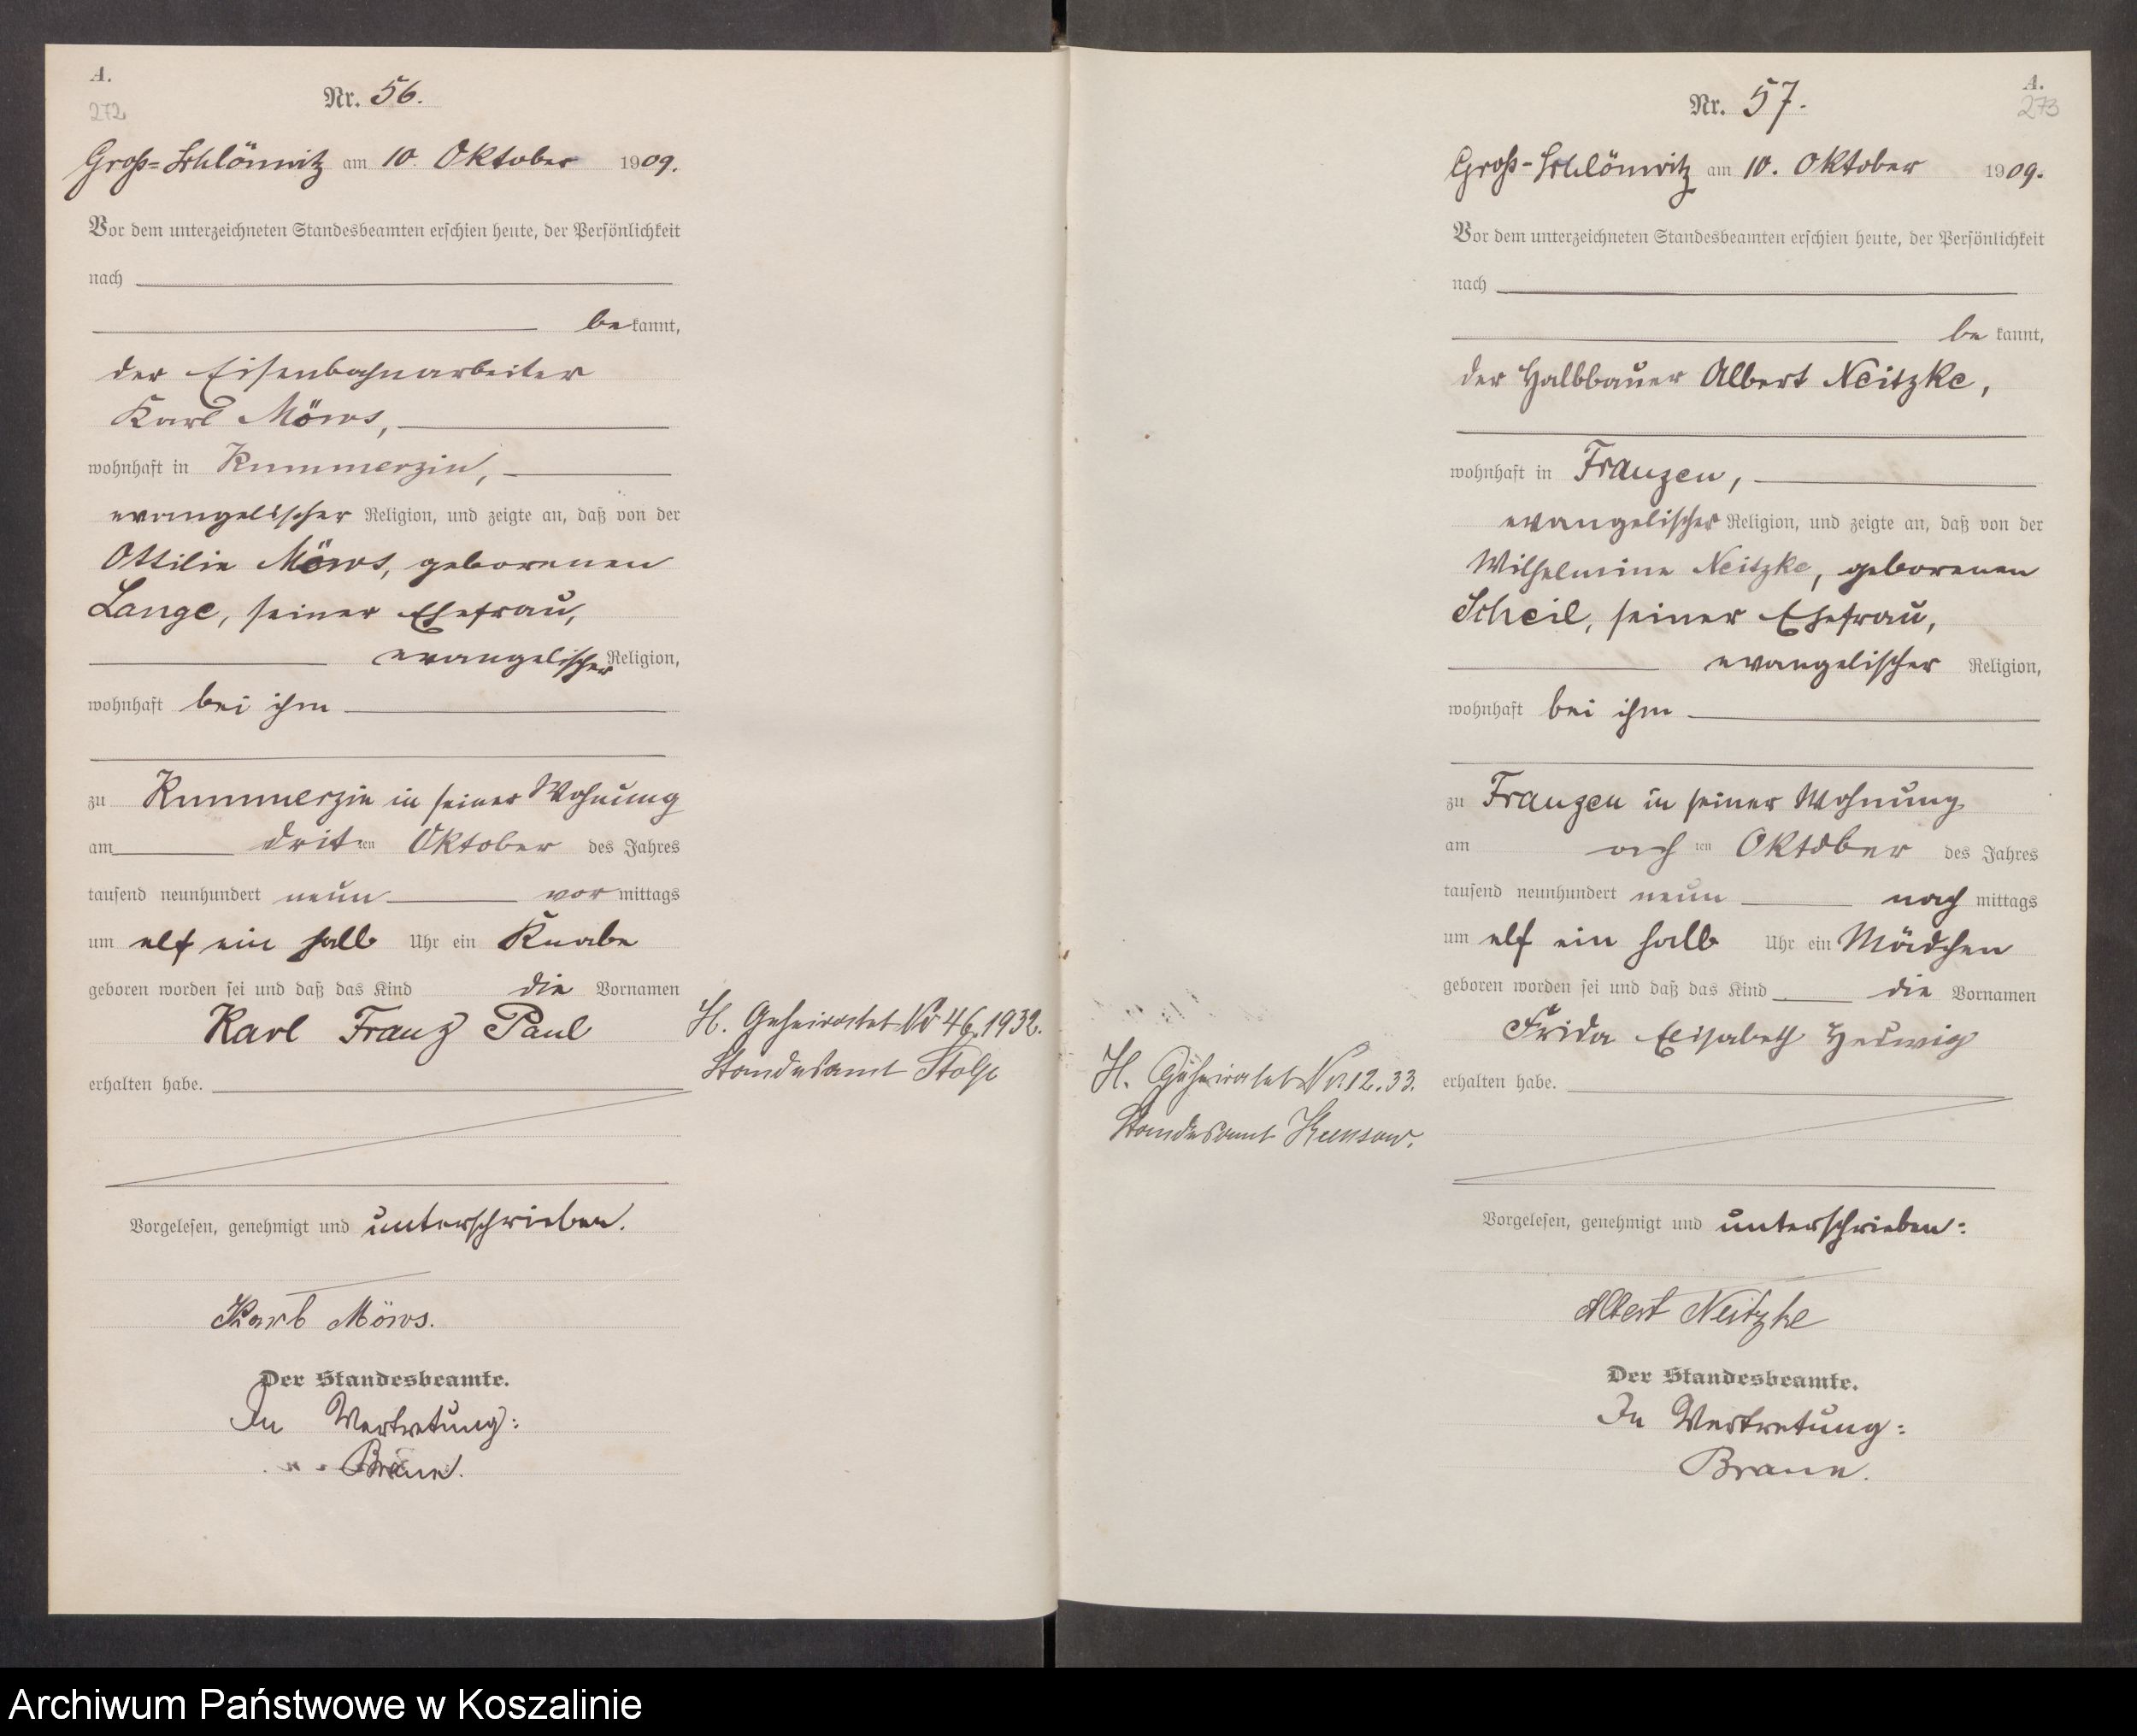 A.
272
Nr. 56.
Groß-Schlönwitz am 10. Oktober 1909.
Vor dem unterzeichneten Standesbeamten erschien heute, der Persönlichkeit
nach
be kannt,
der Eisenbahnarbeiter
Karl Möws,
wohnhaft in Kummerzin,
evangelischer Religion, und zeigte an, daß von der
Ottilie Möws, geborenen
Lange, seiner Ehefrau,
evangelischer Religion,
wohnhaft bei ihm
zu Kummerzin in seiner Wohnung
am dritten Oktober des Jahres
tausend neunhundert neun vor mittags
um elf ein halb Uhr ein Knabe
geboren worden sei und daß das Kind die Vornamen
Karl Franz Paul
erhalten habe.
Vorgelesen, genehmigt und unterschrieben.
Karl Möws.
Der Standesbeamte.
In Vertretung:
Braun.
H. Geheiratet Nr 46.1932.
Standesamt Stolp
A.
273
Nr. 57.
Groß-Schlönwitz am 10. Oktober 1909.
Vor dem unterzeichneten Standesbeamten erschien heute, der Persönlichkeit
nach
be kannt,
der Halbbauer Albert Neitzke,
wohnhaft in Franzen,
evangelischer Religion, und zeigte an, daß von der
Wilhelmine Neitzke, geborenen
Scheil, seiner Ehefrau,
evangelischer Religion,
wohnhaft bei ihm
zu Franzen in seiner Wohnung
am achten Oktober des Jahres
tausend neunhundert neun nach mittags
um elf ein halb Uhr ein Mädchen
geboren worden sei und daß das Kind die Vornamen
Frida Elisabeth Hedwig
erhalten habe.
Vorgelesen, genehmigt und unterschrieben:
Albert Neitzke
Der Standesbeamte.
In Vertretung:
Braun.
H. Geheiratet Nr 12.33.
Standesamt
Archiwum Państwowe w Koszalinie